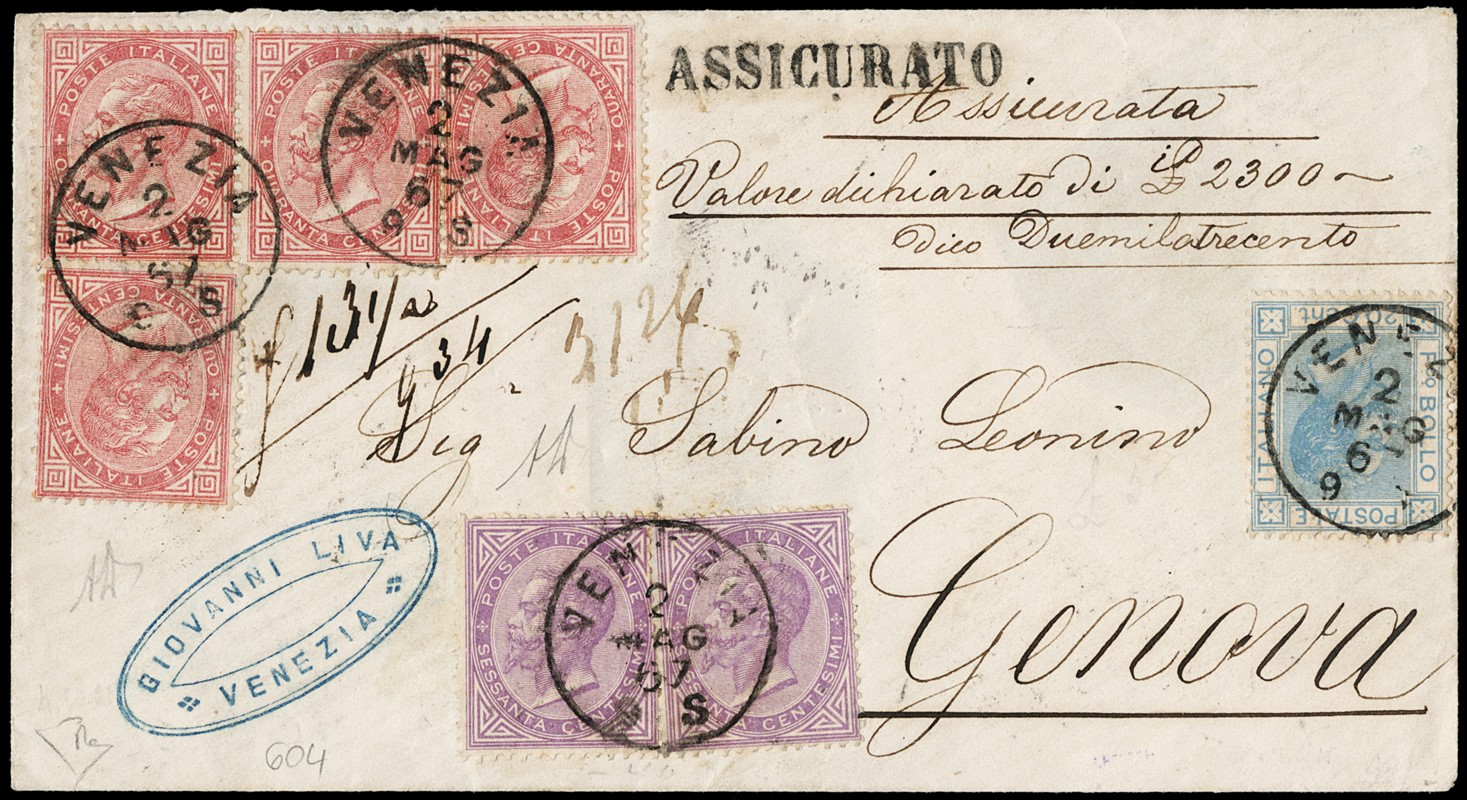 ASSICURATO
Assicurata
Valore dichiarato di £ 2300
dico Duemilatrecento
POSTE ITALIANE
QUARANTA CENTESIMI
POSTE ITALIANE
QUARANTA CENTESIMI
POSTE ITALIANE
QUARANTA CENTESIMI
VENEZIA
2
MAG
67
9 S
VENEZIA
2
MAG
67
9 S
POSTE ITALIANE
QUARANTA CENTESIMI
934
3124
Sig Sabino Leonino
Genova
20 Cent
Po BOLLO
POSTALE
ITALIANO
VENEZ
2
MAG
6
9
POSTE ITALIANE
SESSANTA CENTESIMI
POSTE ITALIANE
SESSANTA CENTESIMI
VENEZIA
2
MAG
67
S
GIOVANNI LIVA
VENEZIA
604